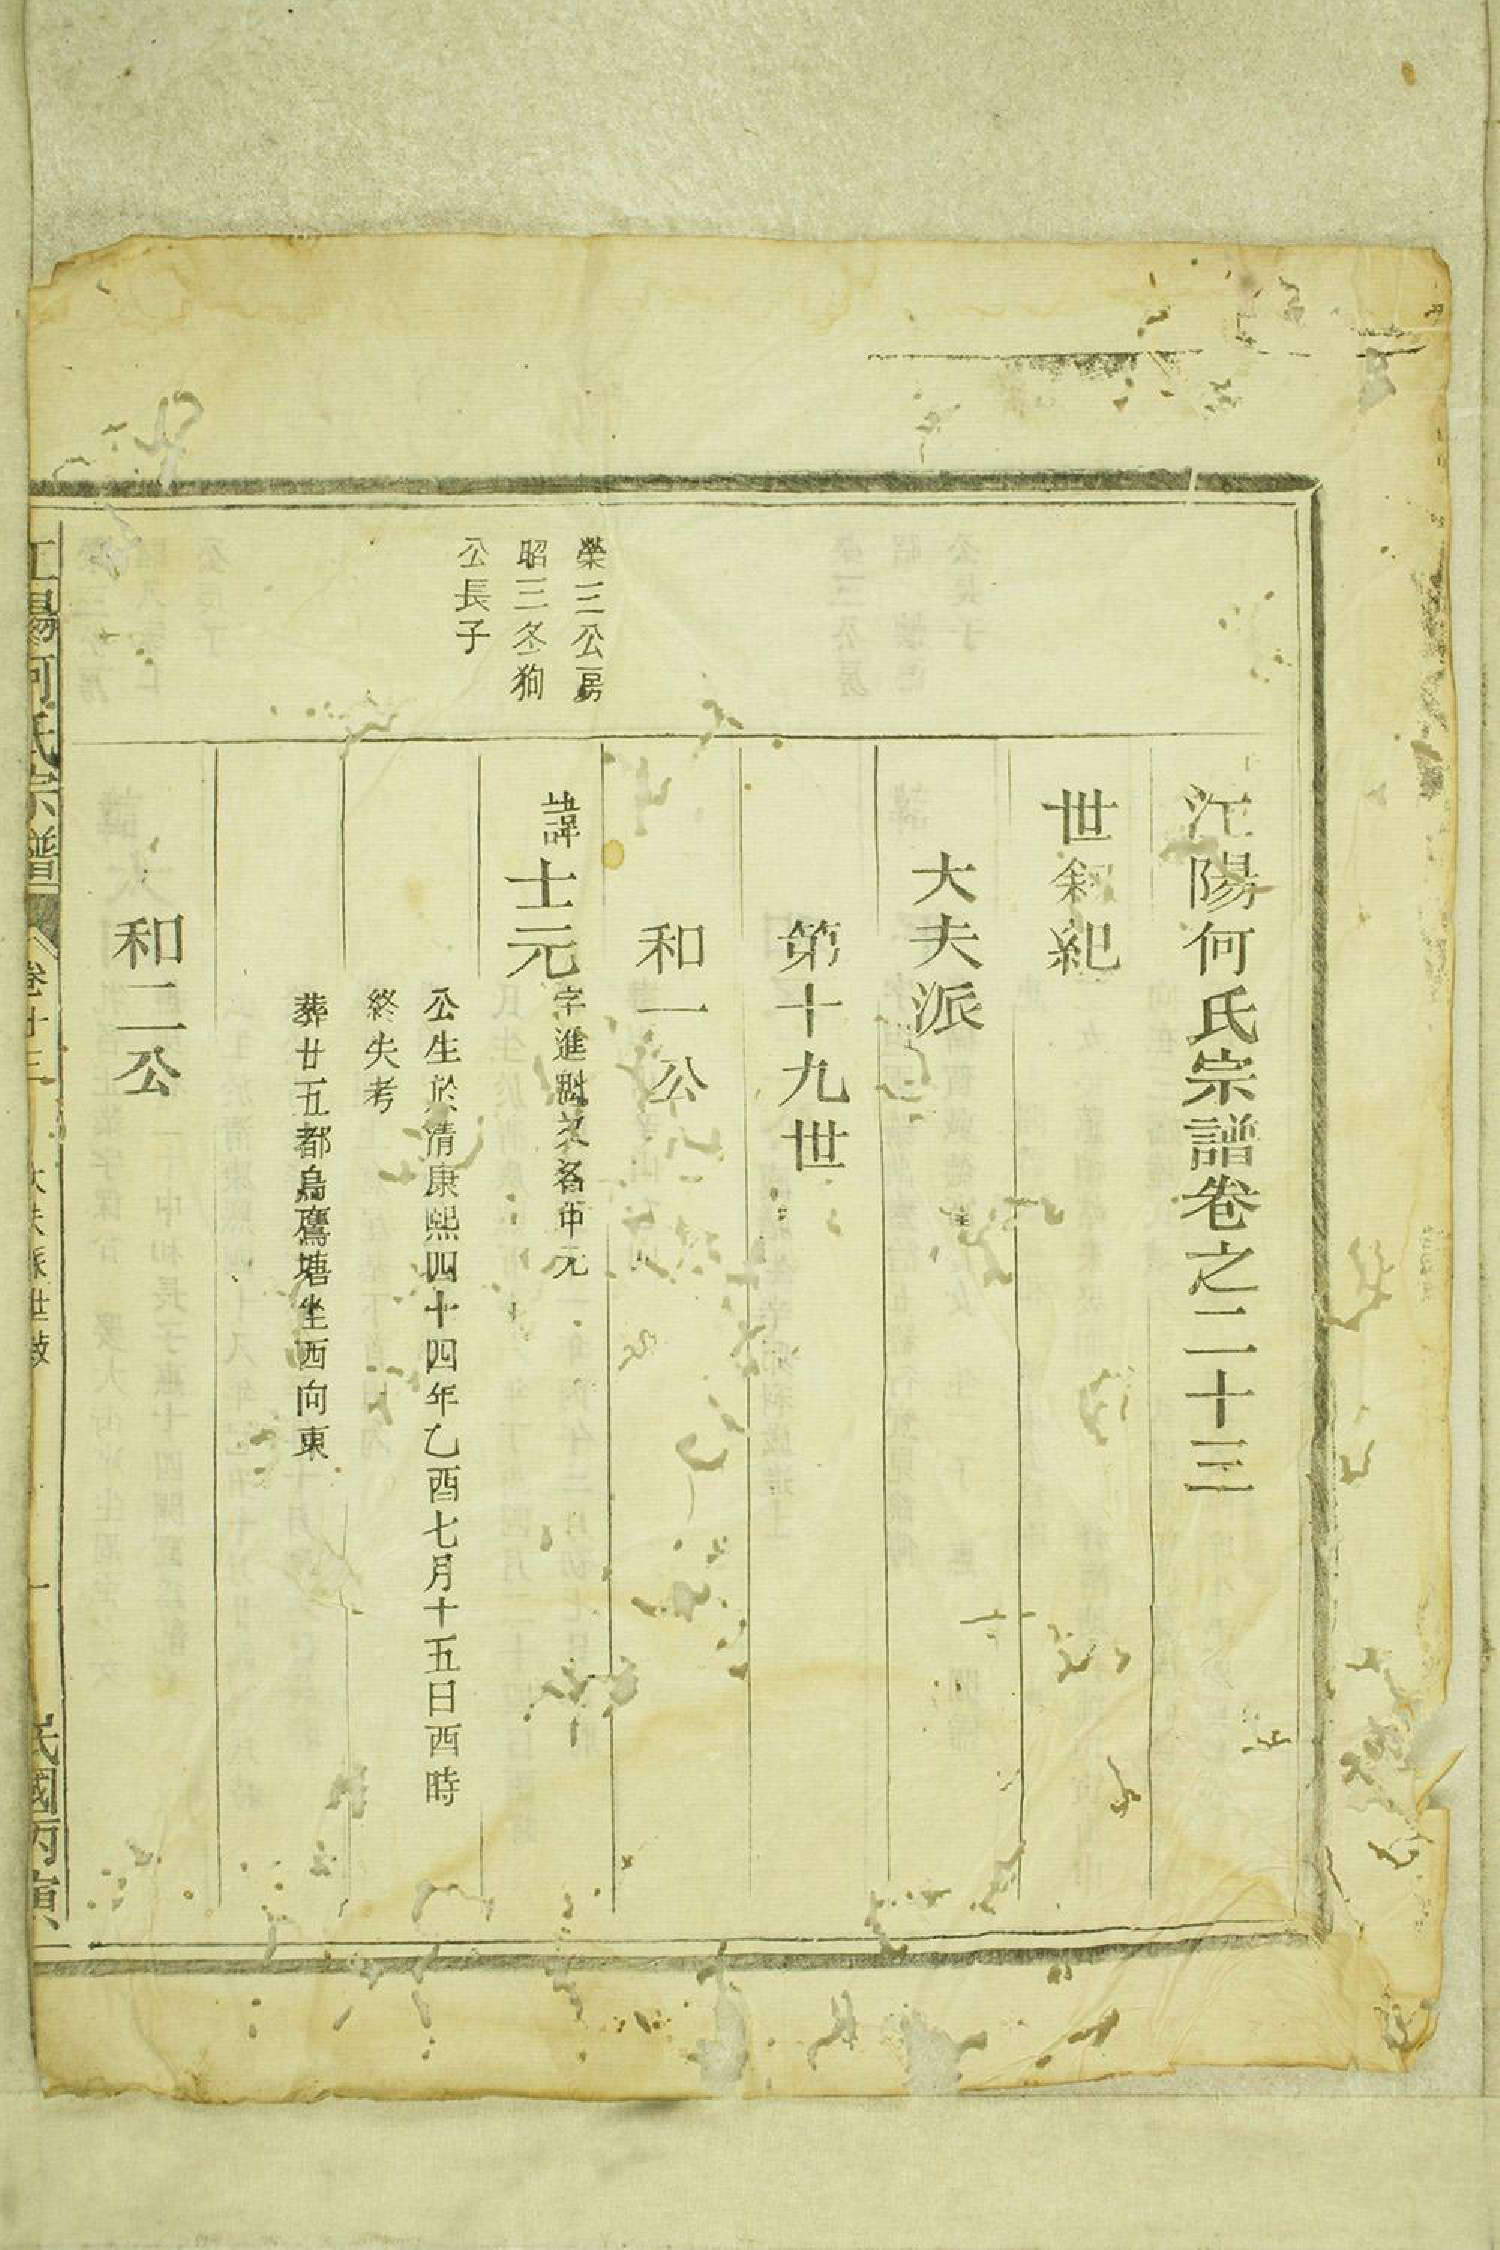 江陽何氏宗譜卷之二十三
世叙紀
大夫派
第十九世
和一公
榮三公房
昭三冬狗
公長子
諱士元
字進魁又名仲元
公生於清康熙四十四年乙酉七月十五日酉時
終失考
葬廿五都烏鷹塘坐西向東
和二公
江陽何氏宗譜
卷廿三
大夫派世敘
一
民國丙寅